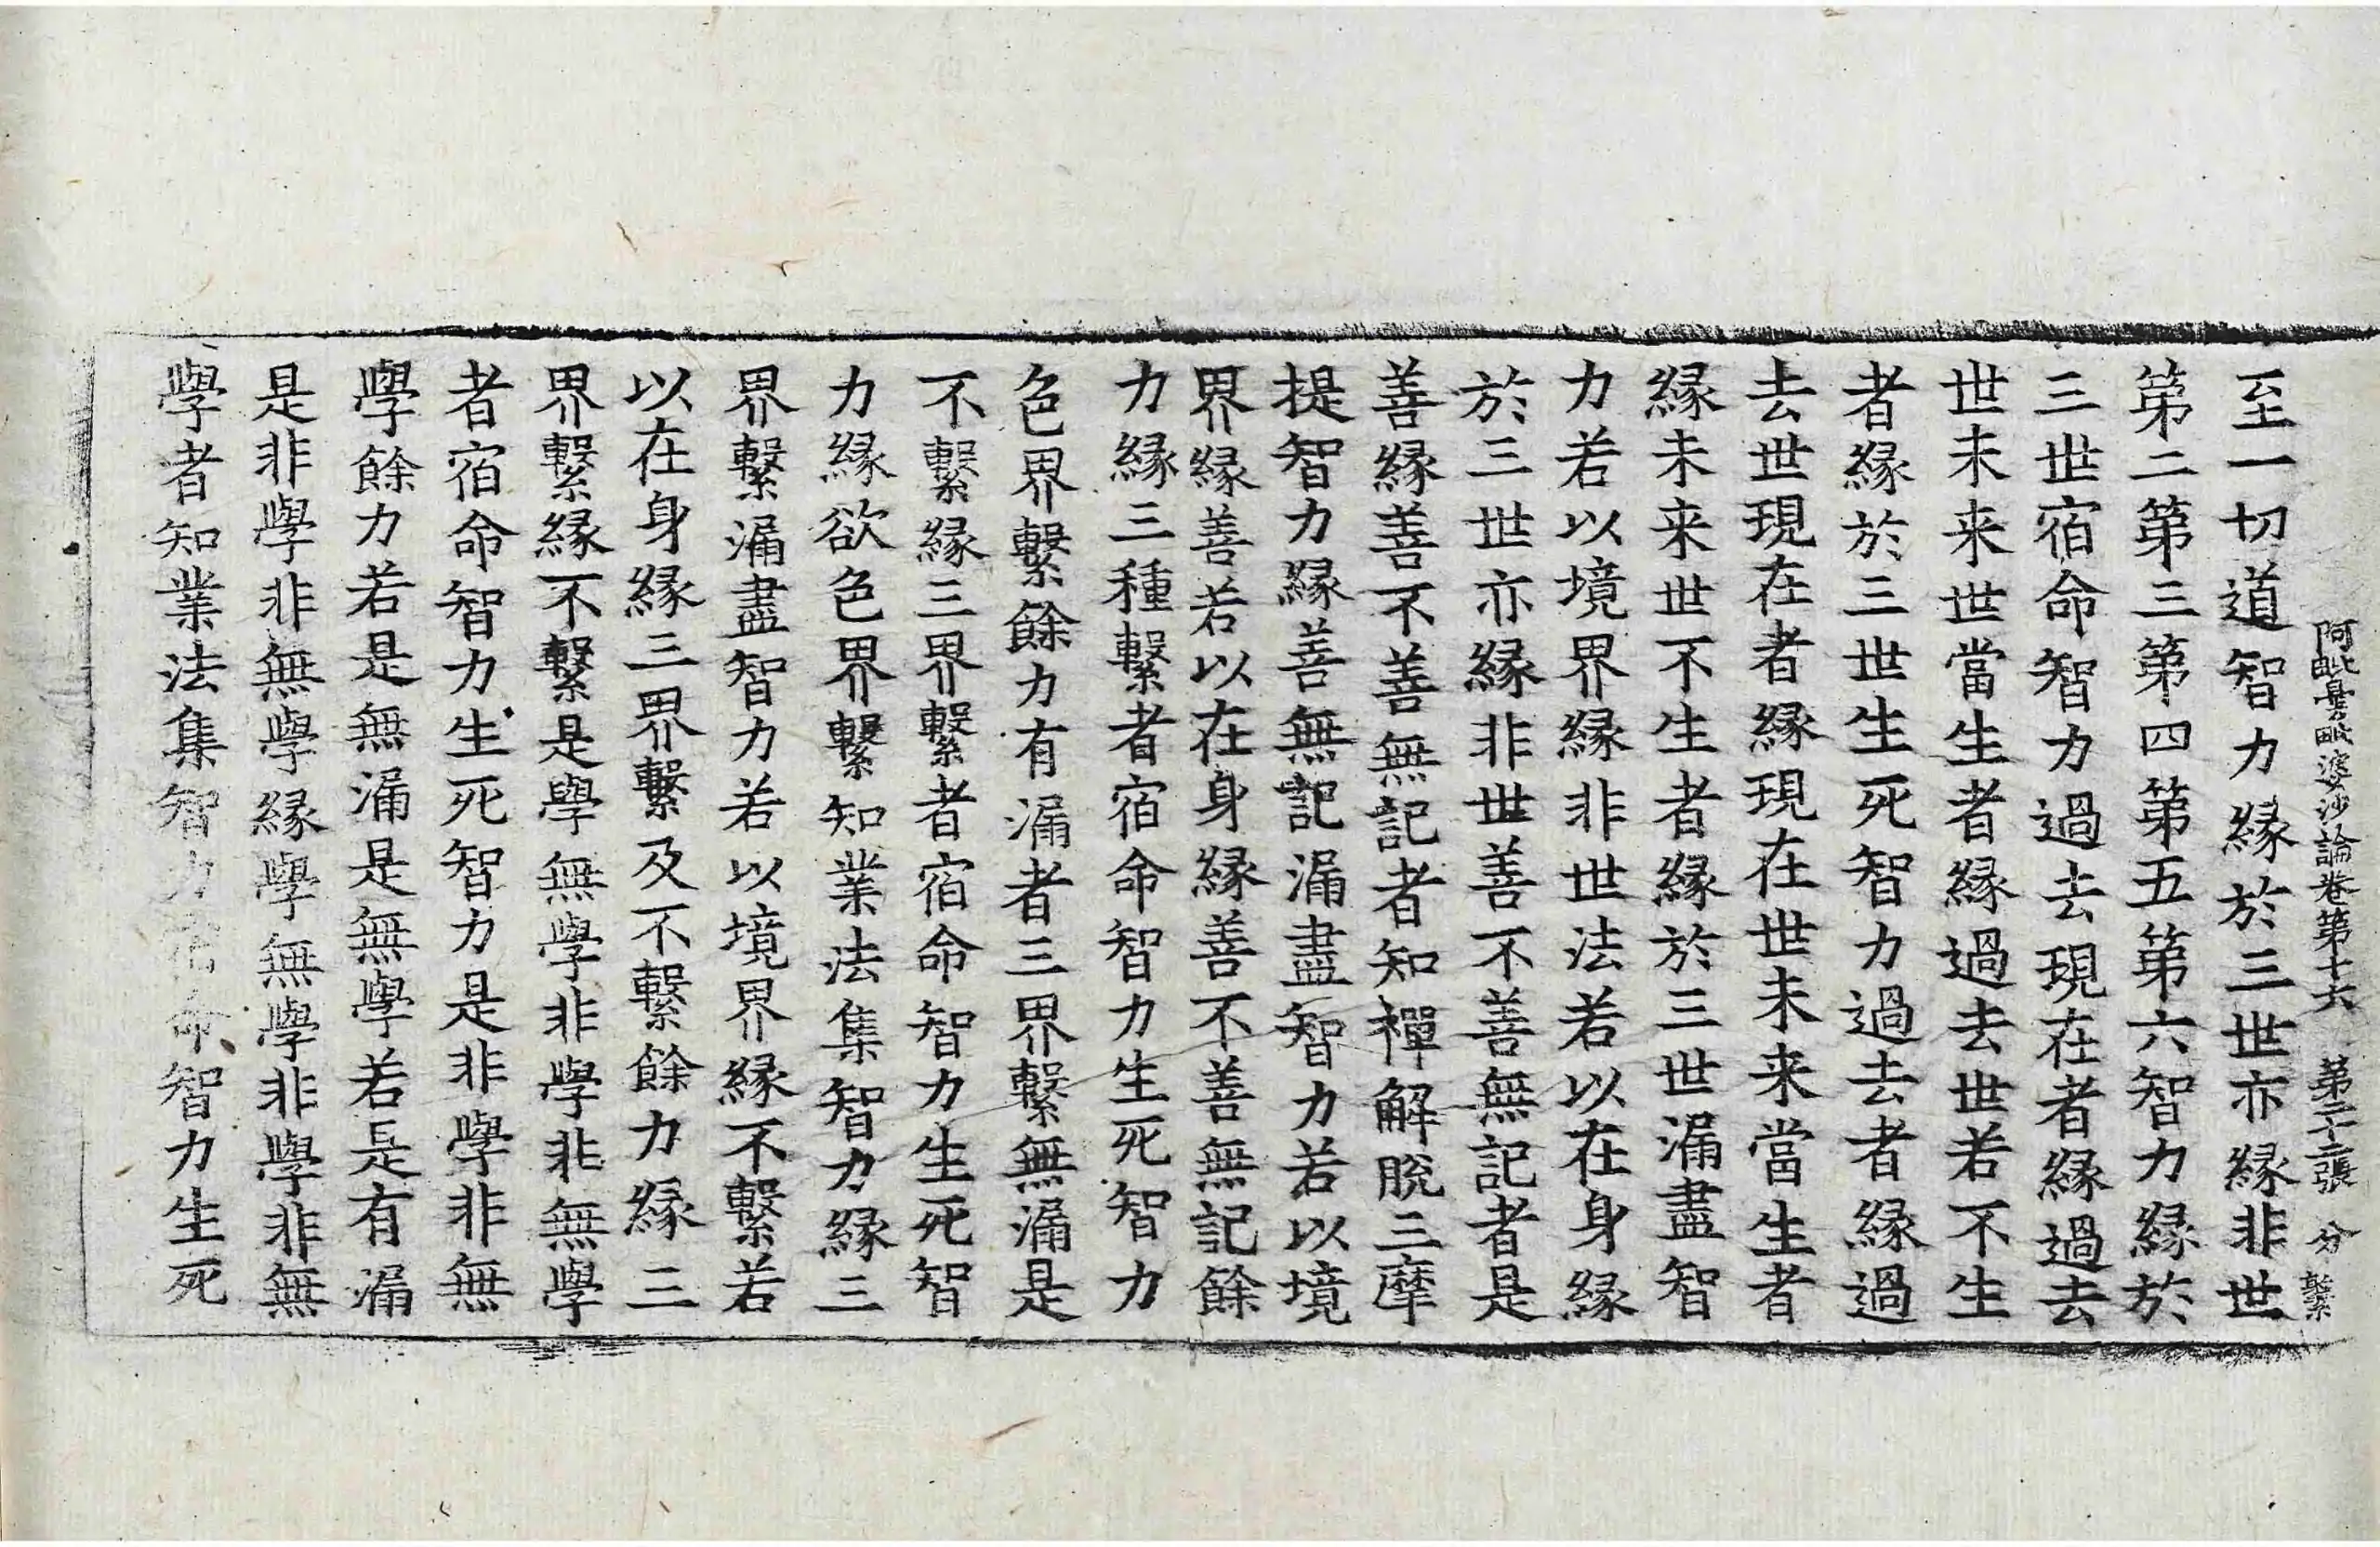 阿毗曇毗婆沙論卷第十六 第二十二張 分 繫
至一切道智力縁於三世亦縁非世
第二第三第四第五第六智力縁於
三世宿命智力過去現在者縁過去
世未来世當生者縁過去世若不生
者縁於三世生死智力過去者縁過
去世現在者縁現在世未来當生者
縁未来世不生者縁於三世漏盡智
力若以境界縁非世法若以在身縁
於三世亦縁非世善不善無記者是
善縁善不善無記者知禪解脫三摩
提智力縁善無記漏盡智力若以境
界縁善若以在身縁善不善無記餘
力縁三種繫者宿命智力生死智力
色界繫餘力有漏者三界繫無漏是
不繫縁三界繫者宿命智力生死智
力縁欲色界繫知業法集智力縁三
界繫漏盡智力若以境界縁不繫若
以在身縁三界繫及不繫餘力縁三
界繫縁不繫是學無學非學非無學
者宿命智力生死智力是非學非無
學餘力若是無漏是無學若是有漏
是非學非無學縁學無學非學非無
學者知業法集智力宿命智力生死